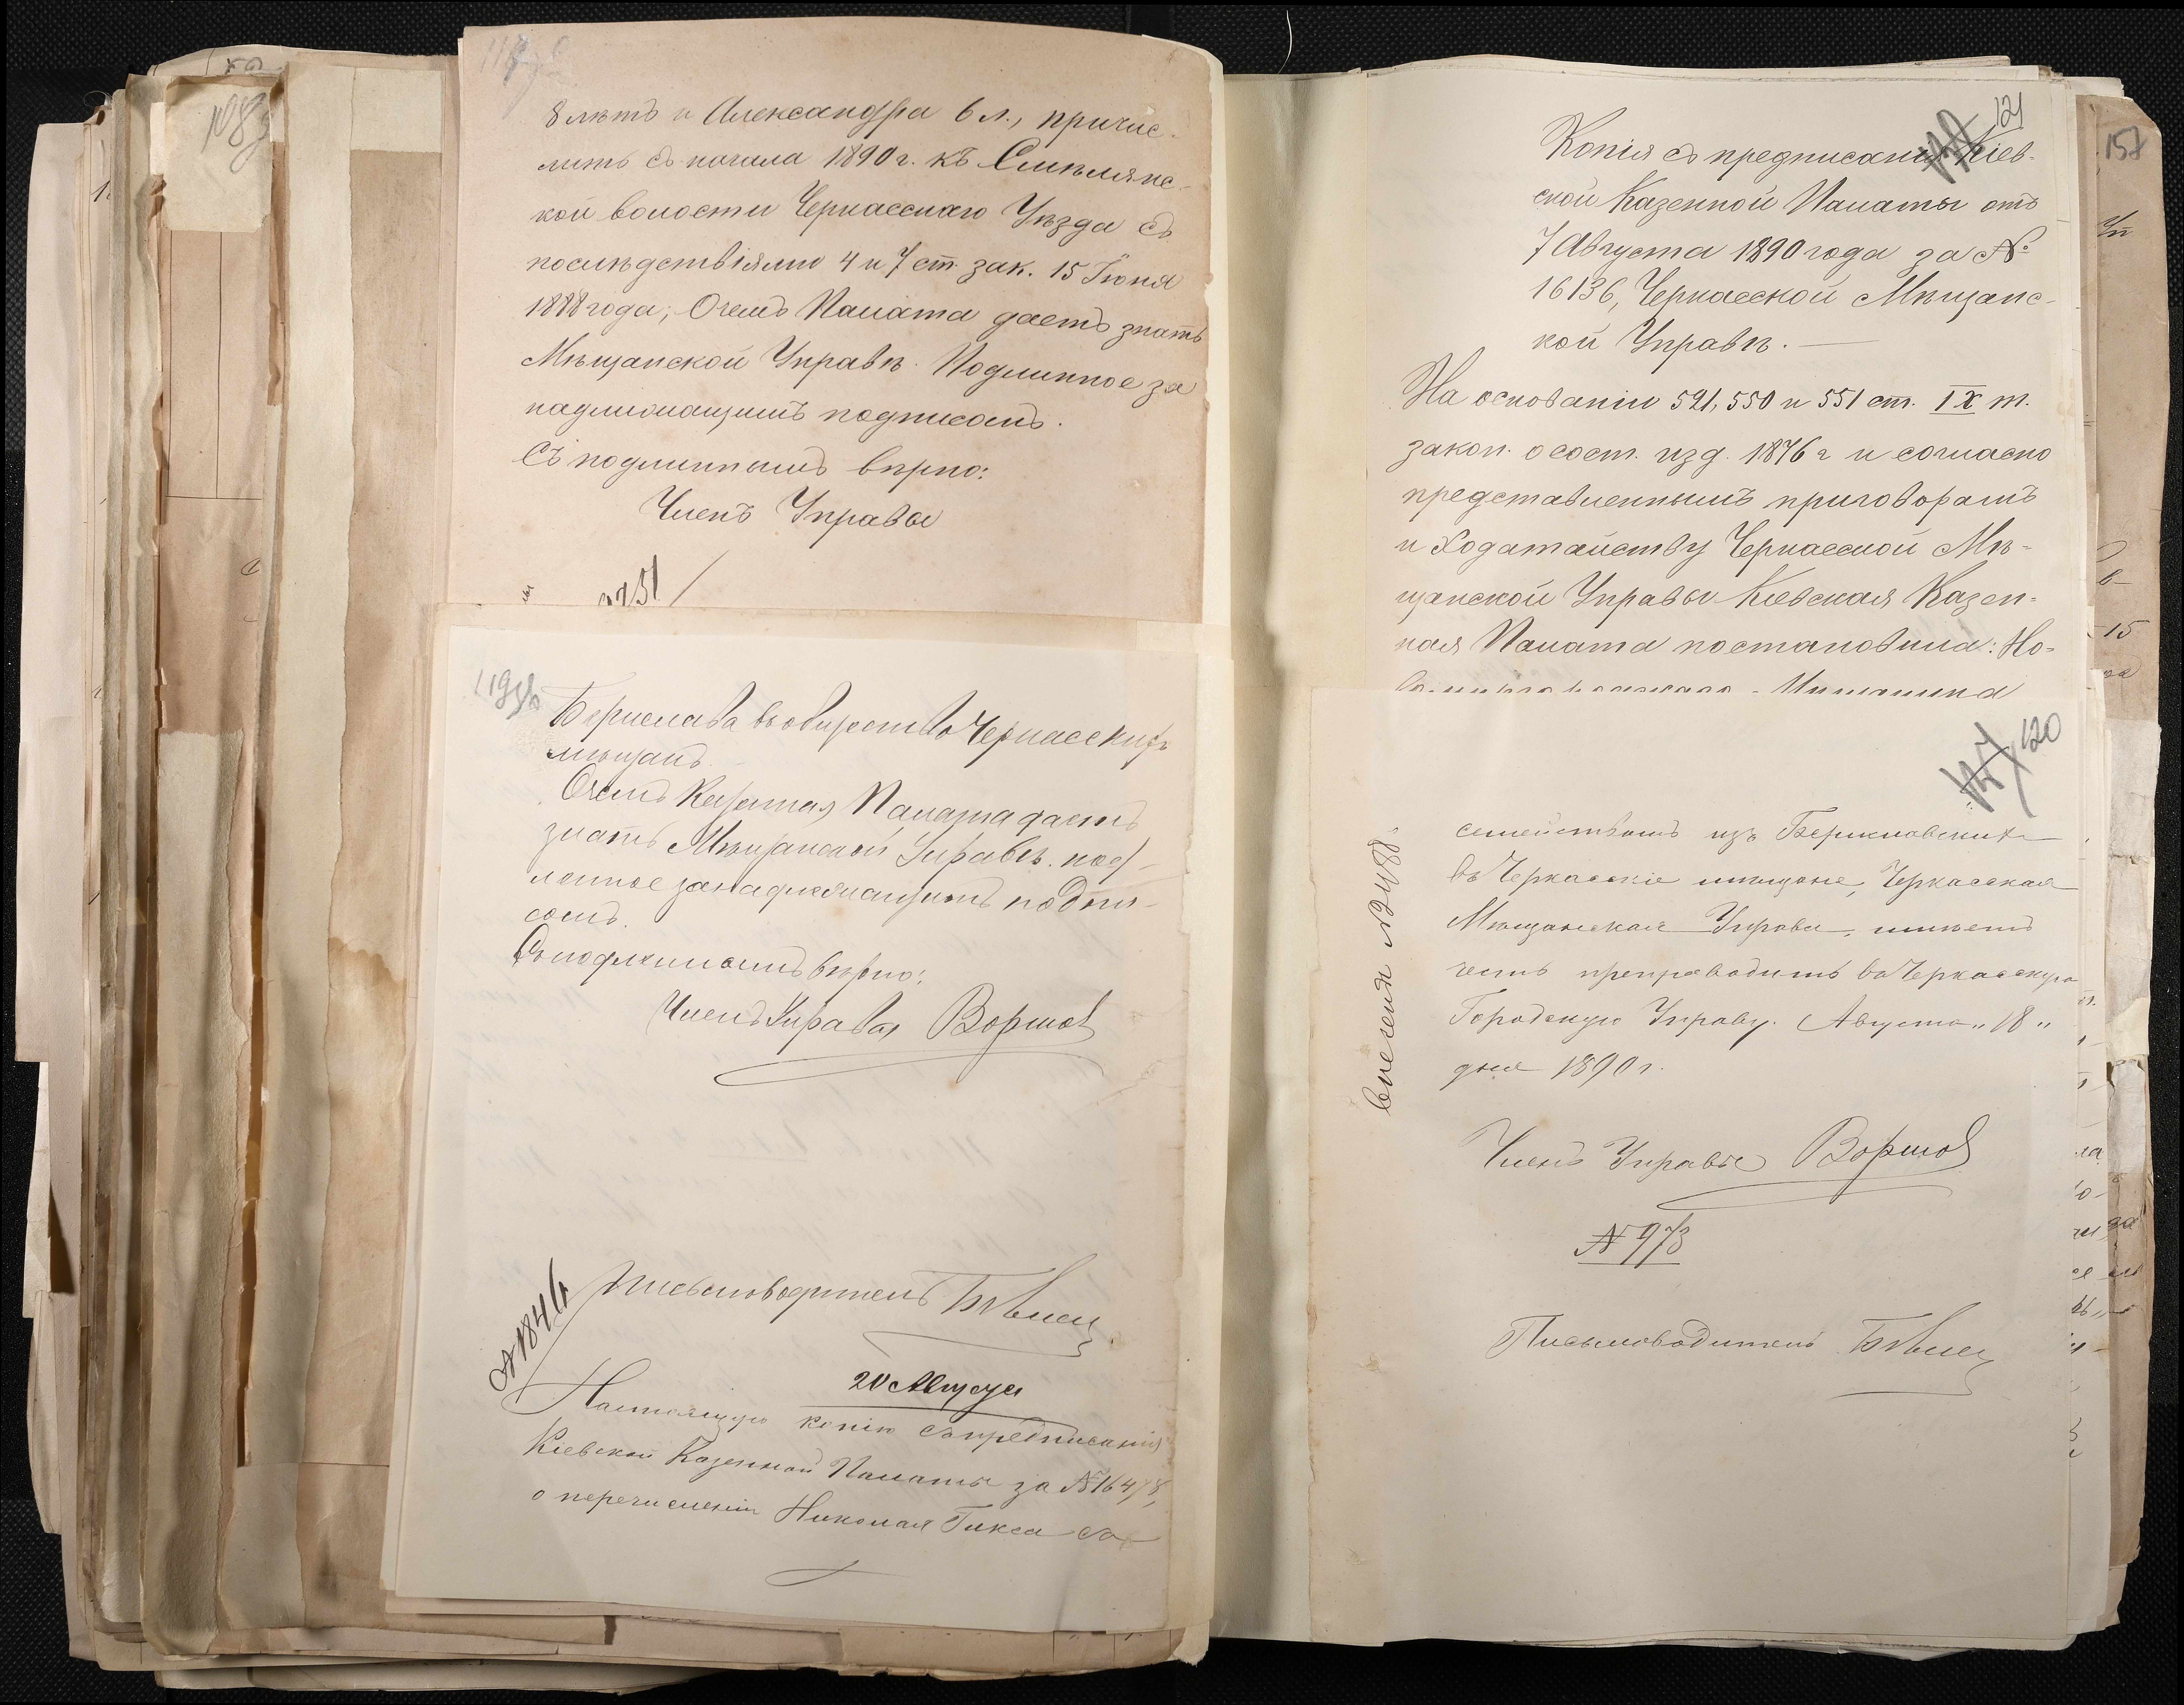 8 лѣтъ и Александра 6 л., причис-
лить съ начала 1890 г. къ Смѣлянс-
кой волости Черкасскаго Уѣзда съ
послѣдствіями 4 и 7 ст. зак. 15 Іюня
1888 года; О чемъ Палата даетъ знать
Мѣщанской Управѣ. Подлинное за
надлежащимъ подписомъ.
Съ подлиннымъ вѣрно:
Членъ Управы
Берислава въ общество Черкасскихъ
мѣщанъ.
О чемъ Казенная Палата даетъ
знать Мѣщанской Управѣ. под-
линное за надлежащимъ подпи-
сомъ.
Съ подлиннымъ вѣрно:
Членъ Управы
Письмоводитель
№ 1846
20 Августа
Настоящую копію съ предписанія
Кіевской Казенной Палаты за № 16478,
о перечисленіи Николая Гикса съ
121
Копія съ предписанія Кіев-
ской Казенной Палаты отъ
7 Августа 1890 года за №
16136, Черкасской Мѣщанс-
кой Управѣ.
На основаніи 521, 550 и 551 ст. IX т.
закон. о сост. изд. 1876 г и согласно
представленнымъ приговорамъ
и ходатайству Черкасской Мѣ-
щанской Управы Кіевская Казен-
ная Палата постановила: Но-
120
семействомъ изъ Бериславскихъ
въ Черкасскіе мѣщане, Черкасская
Мѣщанская Управа, имѣетъ
честь препроводить въ Черкасскую
Городскую Управу. Августа „18"
дня 1890 г.
Членъ Управы
№ 973
Письмоводитель
158